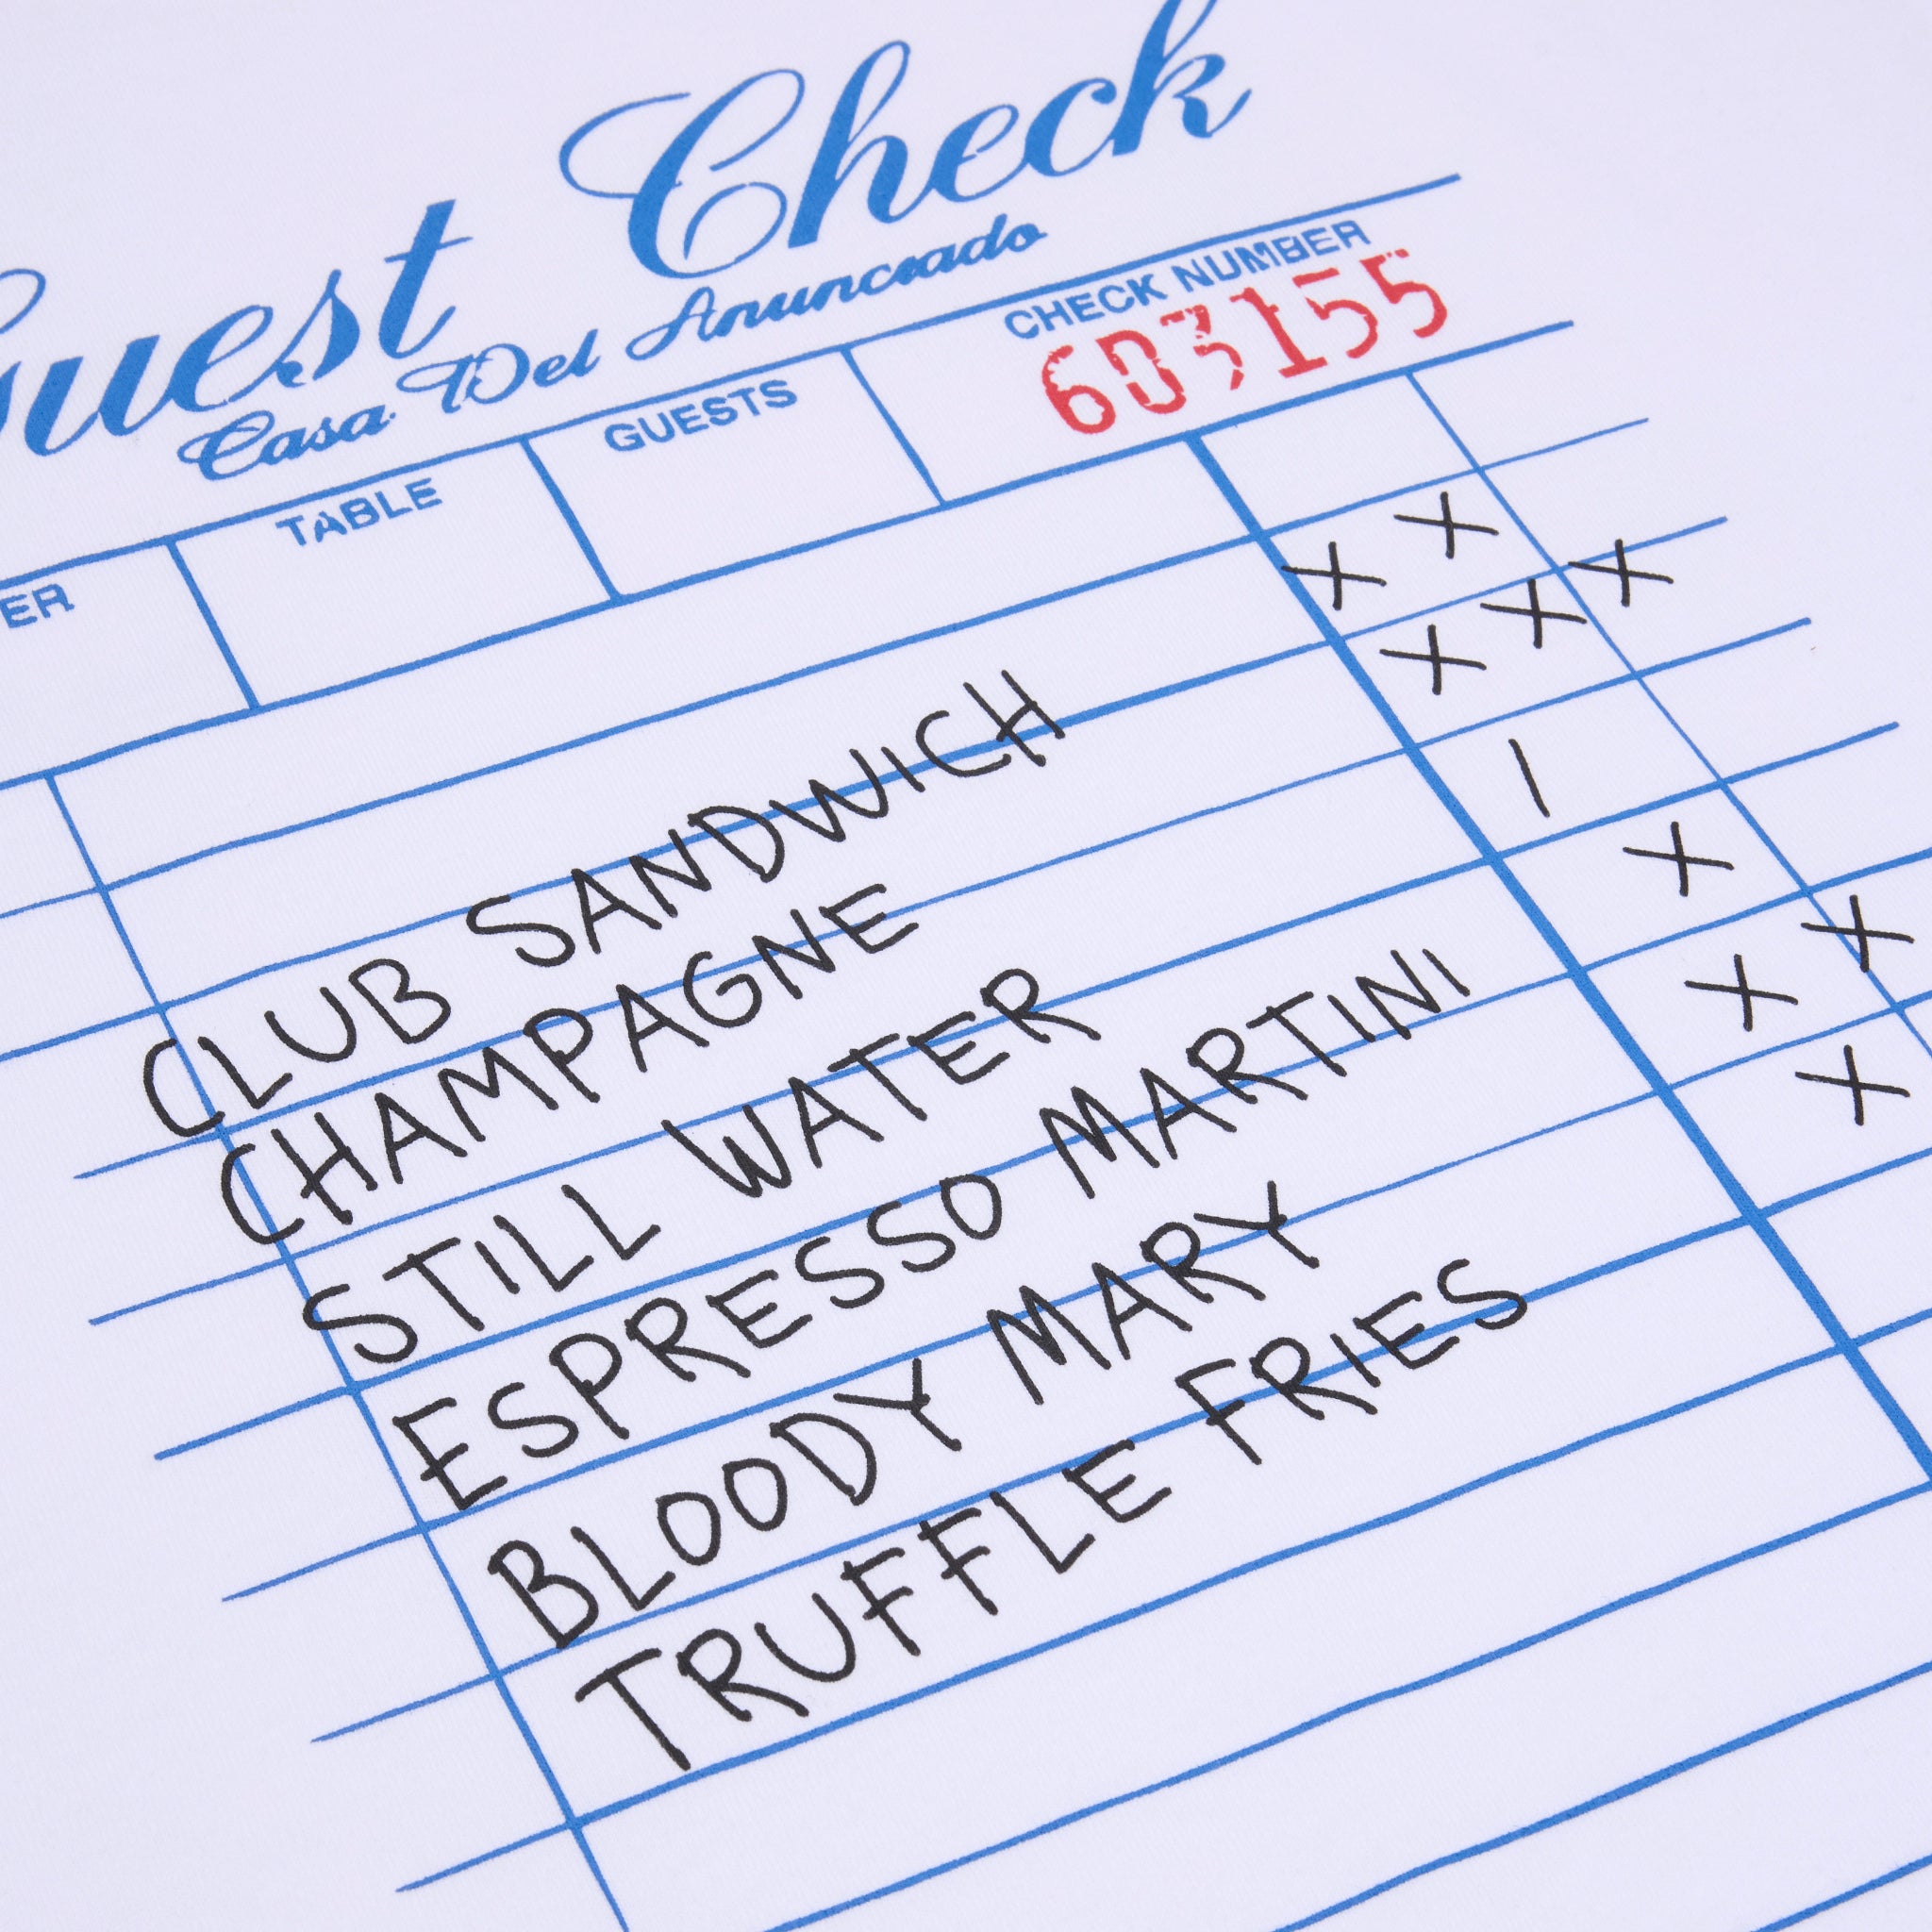 Guest Check
Casa Del Anunciado
TABLE
GUESTS
CHECK NUMBER
603155
CLUB SANDWICH X X
CHAMPAGNE X X X
STILL WATER I
ESPRESSO MARTINI X
BLOODY MARY X X
TRUFFLE FRIES X